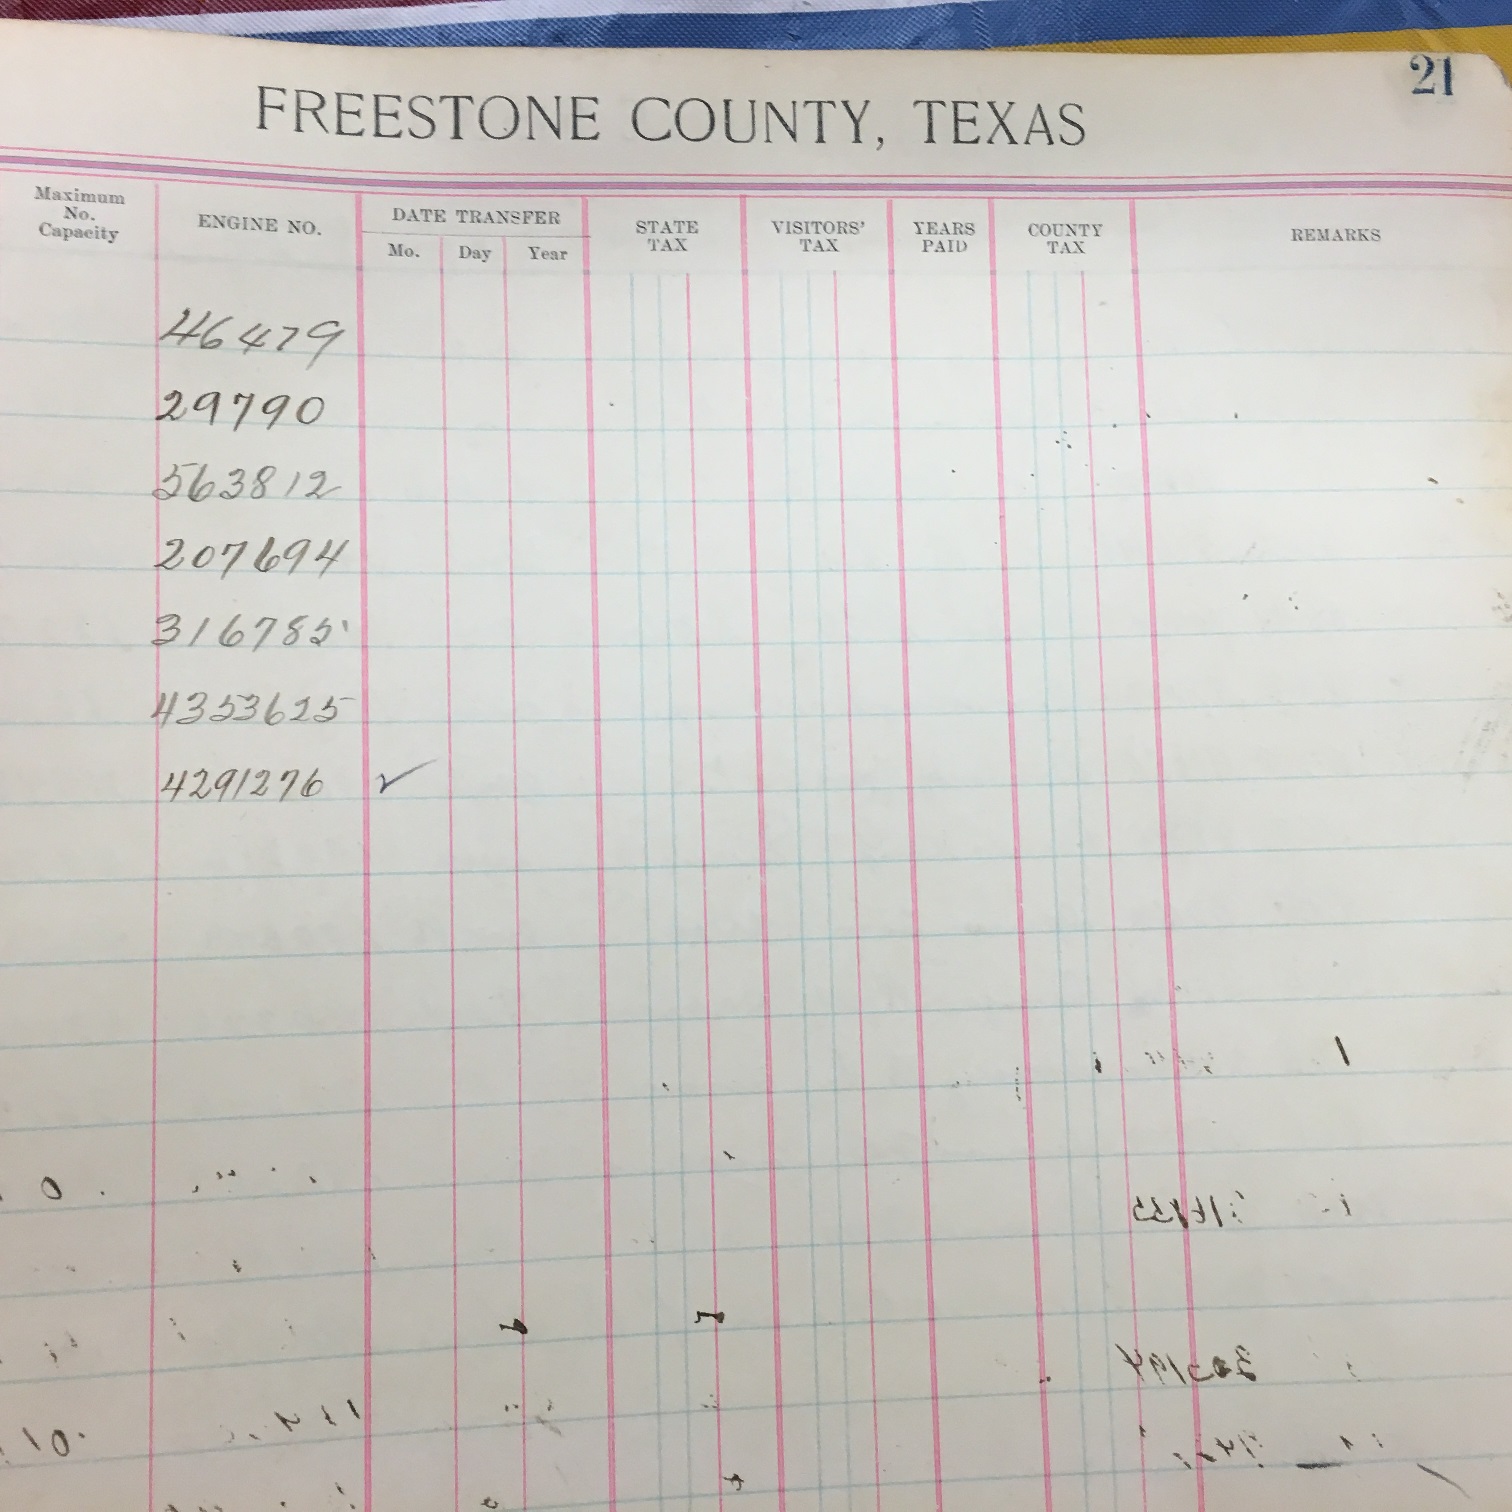 21
FREESTONE COUNTY, TEXAS
Maximum No. Capacity
ENGINE NO.
DATE TRANSFER
Mo. Day Year
STATE TAX
VISITORS' TAX
YEARS PAID
COUNTY TAX
REMARKS
46479
29790
563812
207694
316785
4353625
4291276 ✓